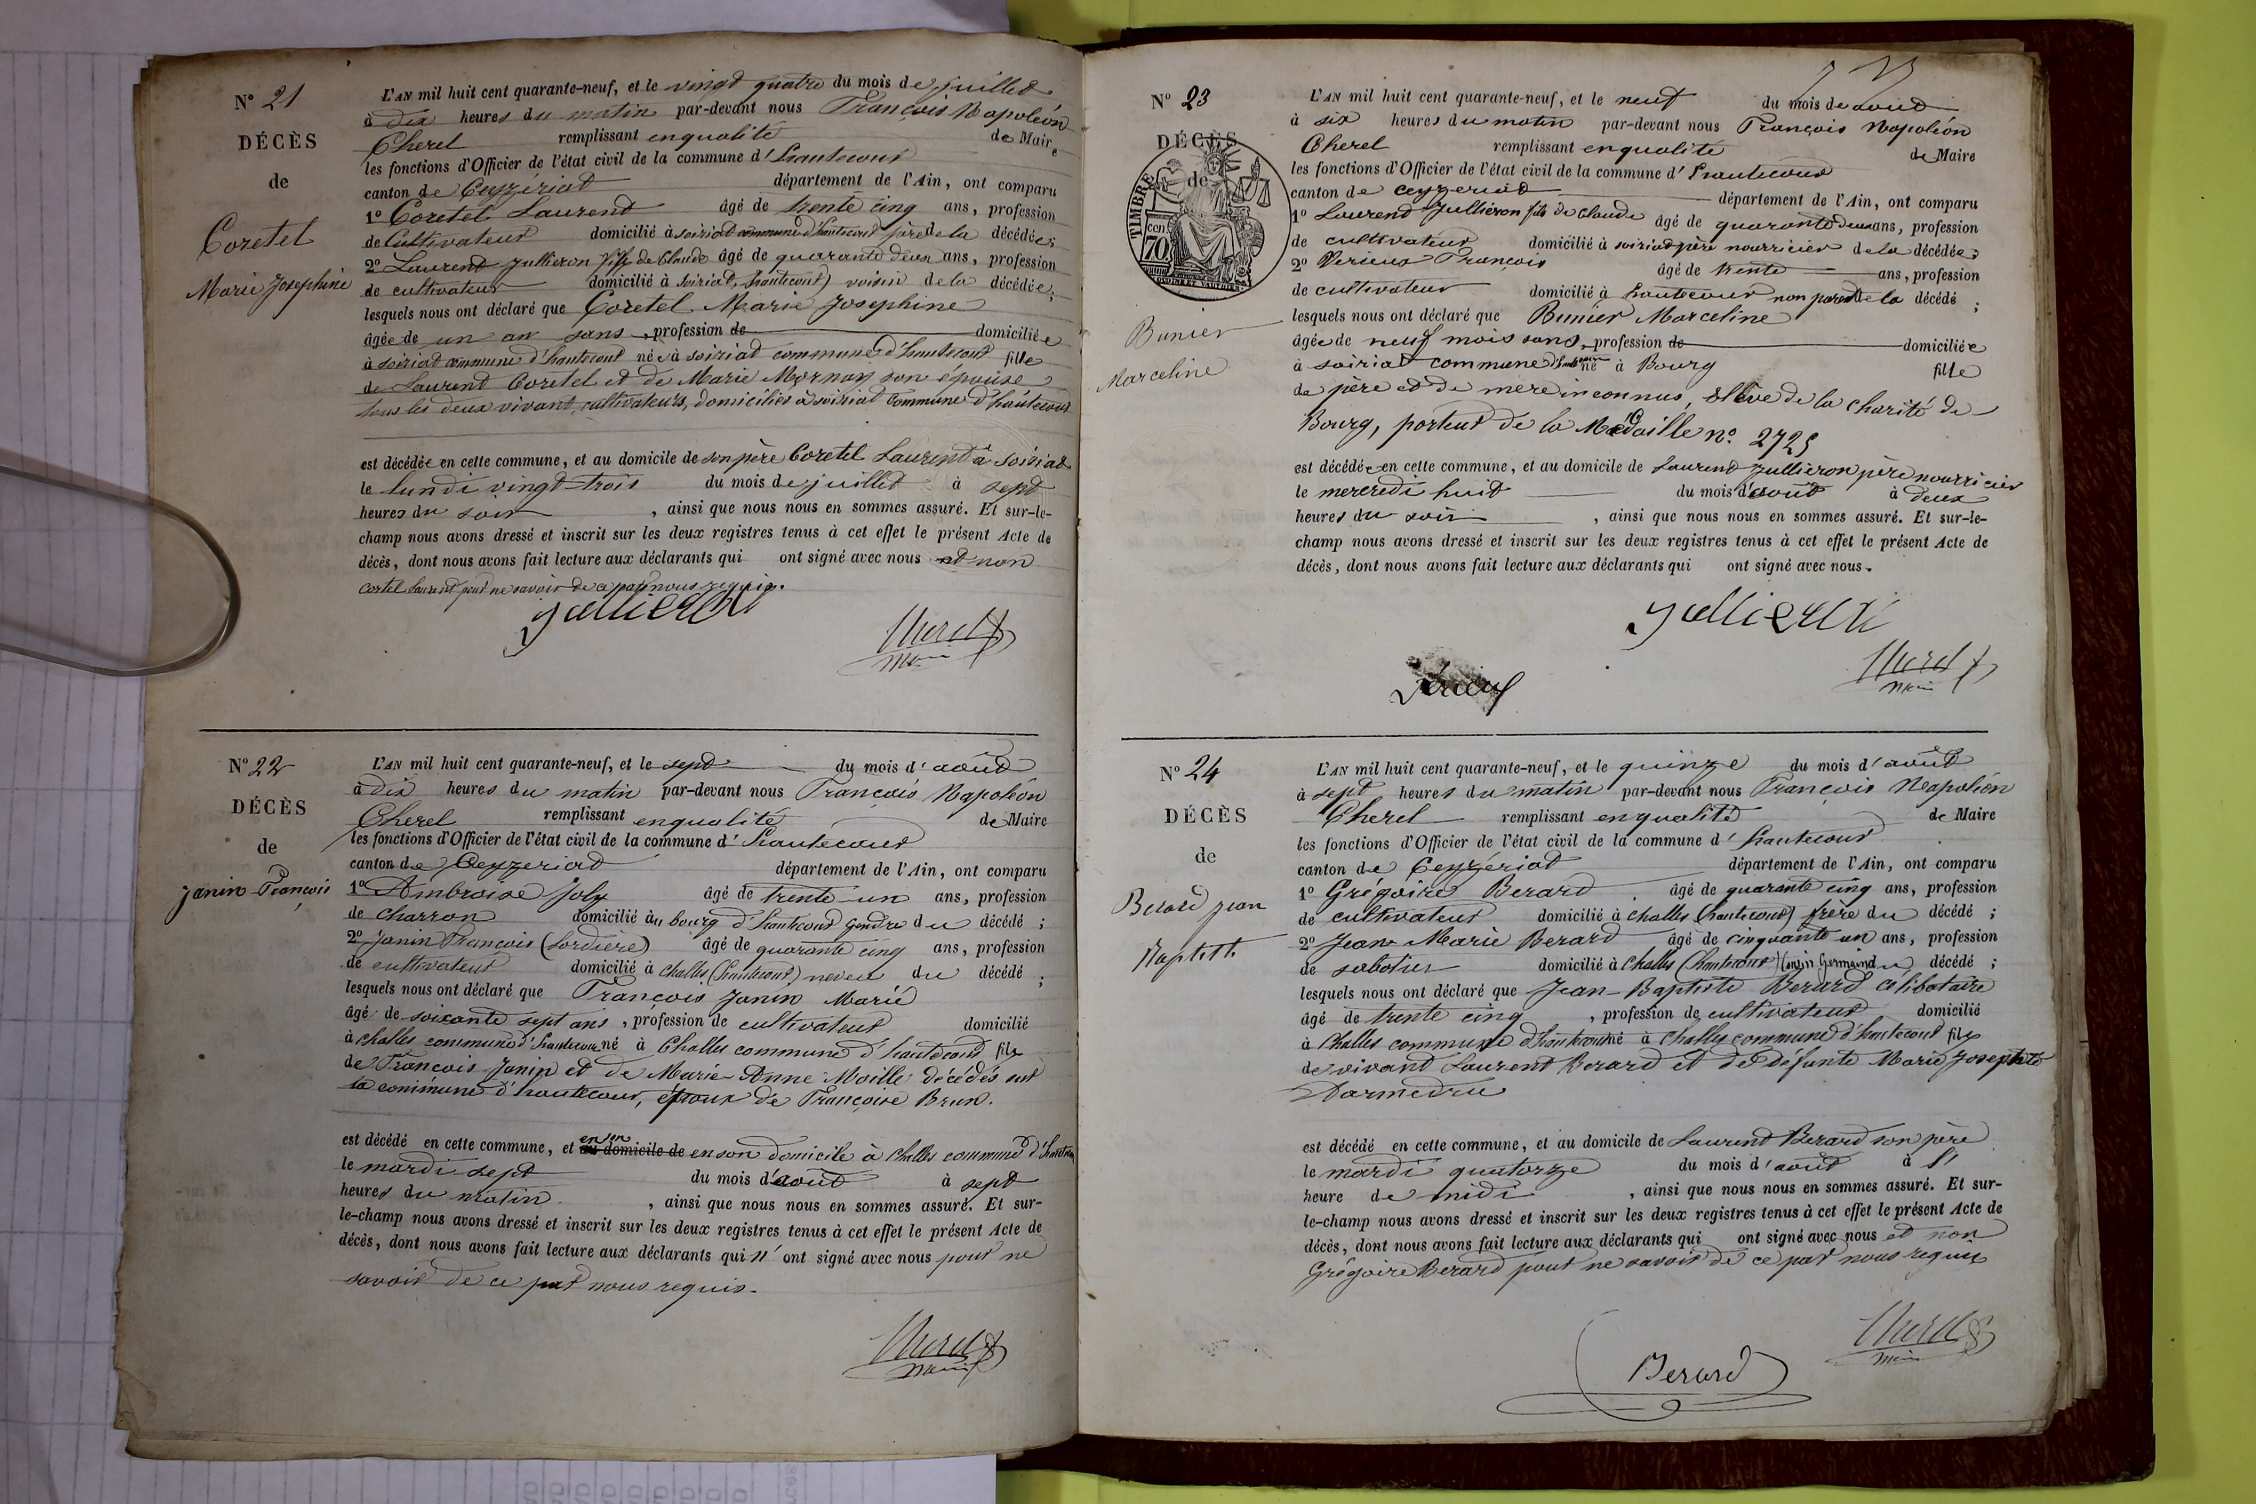 N° 21
DÉCÈS
de
Coretel
Marie Josephine
L'AN mil huit cent quarante-neuf, et le vingt quatre du mois de juillet
à dix heures du matin par-devant nous François Napoléon
Cherel remplissant en qualité de Maire
les fonctions d'Officier de l'état civil de la commune d'hautecour
canton de Ceyzériat département de l'Ain, ont comparu
1° Coretel Laurent âgé de trente cinq ans, profession
de Cultivateur domicilié à soiriat commune d'hautecour père de la décédée;
2° Laurent Jullieron fils de Claude âgé de quarante deux ans, profession
de cultivateur domicilié à soiriat, (hautecour) voisin de la décédée;
lesquels nous ont déclaré que Coretel Marie Josephine
âgée de un an sans, profession de domiciliée
à soiriat commune d'hautecour née à soiriat commune d'hautecour fille
de Laurent Coretel et de Marie Mornay son épouse
tous les deux vivant, cultivateurs, domiciliés à soiriat commune d'hautecour
est décédée en cette commune, et au domicile de son père Coretel Laurent à soiriat
le lundi vingt-trois du mois de juillet à sept
heures du soir, ainsi que nous nous en sommes assuré. Et sur-le-
champ nous avons dressé et inscrit sur les deux registres tenus à cet effet le présent Acte de
décès, dont nous avons fait lecture aux déclarants qui ont signé avec nous et non
Cortel Laurent pour ne savoir de ce par nous requis.
Jullieron
Cherel
Maire
N° 22
DÉCÈS
de
Janin François
L'AN mil huit cent quarante-neuf, et le sept du mois d'août
à dix heures du matin par-devant nous François Napoléon
Cherel remplissant en qualité de Maire
les fonctions d'Officier de l'état civil de la commune d'hautecour
canton de Ceyzeriat département de l'Ain, ont comparu
1° Ambroise Joly âgé de trente un ans, profession
de charron domicilié au bourg d'hautecour gendre du décédé;
2° Janin François (Lordière) âgé de quarante cinq ans, profession
de cultivateur domicilié à challes (hautecour) neveu du décédé;
lesquels nous ont déclaré que François Janin Marie
âgé de soixante sept ans, profession de cultivateur domicilié
à challes commune d'hautecour né à Challes commune d'hautecour fils
de François Janin et de Marie-Anne Moille décédés sur
la commune d'hautecour, époux de Françoise Brun.
est décédé en cette commune, et au domicile de en son domicile à challes commune d'hautecour
le mardi sept du mois d'août à sept
heures du matin, ainsi que nous nous en sommes assuré. Et sur-
le-champ nous avons dressé et inscrit sur les deux registres tenus à cet effet le présent Acte de
décès, dont nous avons fait lecture aux déclarants qui n'ont signé avec nous pour ne
savoir de ce par nous requis.
Cherel
Maire
N° 23
DÉCÈS
de
TIMBRE
70
Bunier
Marceline
L'AN mil huit cent quarante-neuf, et le neuf du mois de aout
à six heures du matin par-devant nous François Napoléon
Cherel remplissant en qualité de Maire
les fonctions d'Officier de l'état civil de la commune d'hautecour
canton de ceyzeriat département de l'Ain, ont comparu
1° Laurent Jullieron fils de Claude âgé de quarante deux ans, profession
de cultivateur domicilié à soiriat père nourricier de la décédée;
2° Verieux François âgé de trente ans, profession
de cultivateur domicilié à hautecour non parent de la décédé;
lesquels nous ont déclaré que Bunier Marceline
âgée de neuf mois sans, profession de domiciliée
à soiriat commune d'hautecour né à Bourg fille
de père et de mère inconnus, élève de la charité de
Bourg, porteur de la Médaille n° 2725
est décédée en cette commune, et au domicile de Laurent Jullieron père nourricier
le mercredi huit du mois d'août à deux
heures du soir, ainsi que nous nous en sommes assuré. Et sur-le-
champ nous avons dressé et inscrit sur les deux registres tenus à cet effet le présent Acte de
décès, dont nous avons fait lecture aux déclarants qui ont signé avec nous.
Jullieron
Cherel
Maire
Vérieux
N° 24
DÉCÈS
de
Berard Jean
Baptiste
L'AN mil huit cent quarante-neuf, et le quinze du mois d'août
à sept heures du matin par-devant nous François Napoléon
Cherel remplissant en qualité de Maire
les fonctions d'Officier de l'état civil de la commune d'hautecour
canton de Ceyzériat département de l'Ain, ont comparu
1° Grégoire Berard âgé de quarante cinq ans, profession
de cultivateur domicilié à challes (hautecour) frère du décédé;
2° Jean-Marie Berard âgé de cinquante un ans, profession
de sabotier domicilié à Challes (hautecour) Cousin Germain du décédé;
lesquels nous ont déclaré que Jean-Baptiste Berard célibataire
âgé de trente cinq, profession de cultivateur domicilié
à Challes commune d'hautecour né à challes commune d'hautecour fils
de vivant Laurent Berard et de défunte Marie Josephte
Darmedru
est décédé en cette commune, et au domicile de Laurent Berard son père
le mardi quatorze du mois d'août à l'
heure de midi, ainsi que nous nous en sommes assuré. Et sur-
le-champ nous avons dressé et inscrit sur les deux registres tenus à cet effet le présent Acte de
décès, dont nous avons fait lecture aux déclarants qui ont signé avec nous et non
Grégoire Berard pour ne savoir de ce par nous requis
Cherel
Maire
Berard